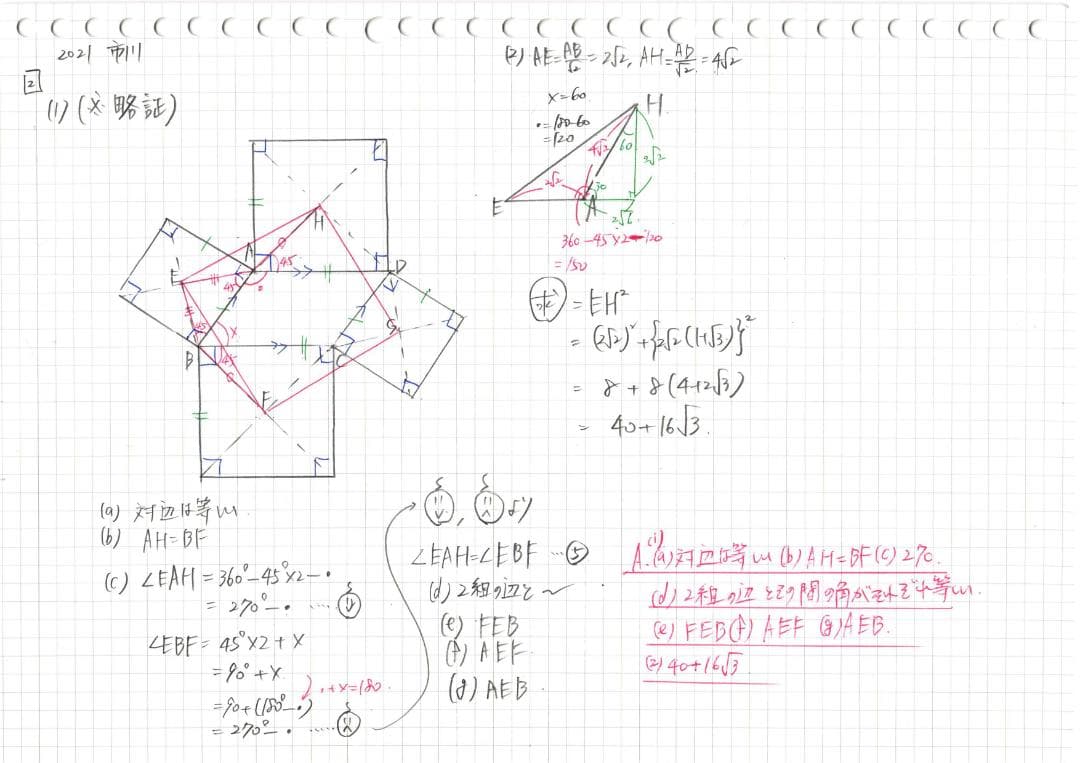 2021 市川
2
(1) (※略証)
(2) AE=AB/√2=2√2, AH=AD/√2=4√2
x=60
•=180-60
=120
H
60
4√2
2√2
2√2
30
E
A
2√2
360-45×2-120
=150
求 = EH²
= (2√2)²+{2√2(1+√3)}²
= 8+8(4+2√3)
= 40+16√3.
H
A
45
D
E
45
45
x
B
45
C
G
F
(a) 対辺は等しい
(b) AH=BF
(c) ∠EAH=360°-45°×2-•
= 270°-• ……
∠EBF= 45°×2+x
=90°+x
=90+(180°-•)
•+x=180.
= 270°-• ……
, より
∠EAH=∠EBF …⑤
(d) 2組の辺と〜
(e) FEB
(f) AEF
(g) AEB
A. (1) (a) 対辺は等しい (b) AH=BF (c) 270.
(d) 2組の辺とその間の角がそれぞれ等しい.
(e) FEB (f) AEF (g) AEB.
(2) 40+16√3